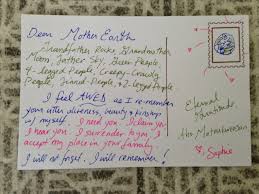 Dear Mother Earth
Grandfather Rocks, Grandmother
Moon, Father Sky, Green People,
4-legged People, Creepy-Crawly
People, Finned-People, & 2-legged People
I feel AWED as I remember
your utter aliveness, beauty & kinship
w/ myself. I need you. I claim you
I hear you. I surrender to you. I
accept my place in your family.
I will not forget. I will remember!
Eternal
Gratitude
The Motherverse
Sophie